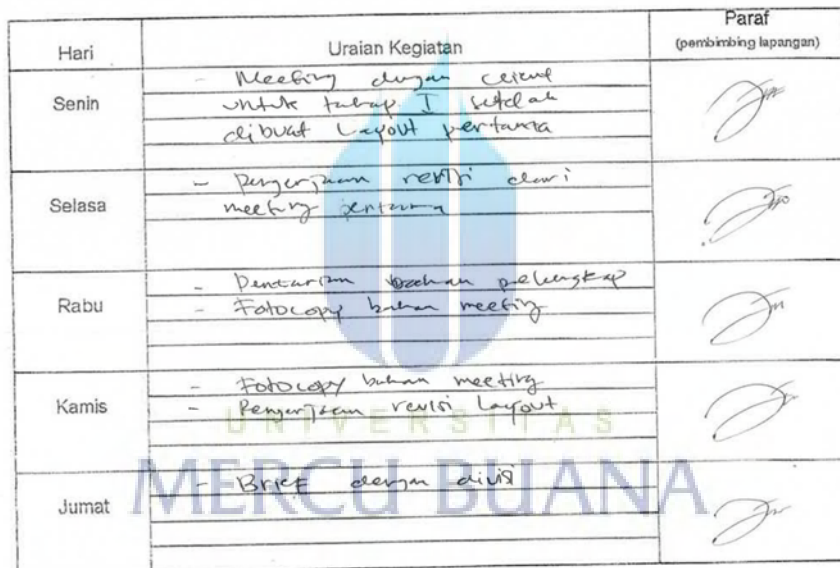 Hari
Uraian Kegiatan
Paraf
(pembimbing lapangan)
Senin
- Meeting dengan client
untuk tahap I setelah
dibuat Layout pertama
Selasa
- Pengerjaan revisi dari
meeting pertama
Rabu
- Pencarian bahan pelengkap
- Fotocopy bahan meeting
Kamis
- Fotocopy bahan meeting
- Pengerjaan revisi Layout
UNIVERSITAS
MERCU BUANA
Jumat
- Brief dengan divisi